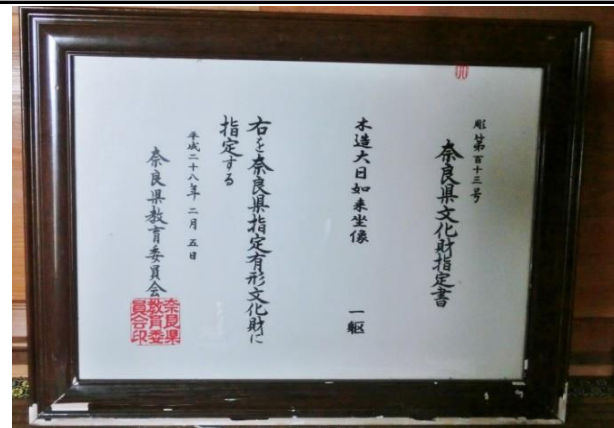 彫第百十三号
奈良県文化財指定書
木造大日如来坐像 一躯
右を奈良県指定有形文化財に
指定する
平成二十八年二月五日
奈良県教育委員会
奈良県
教育委
員会印